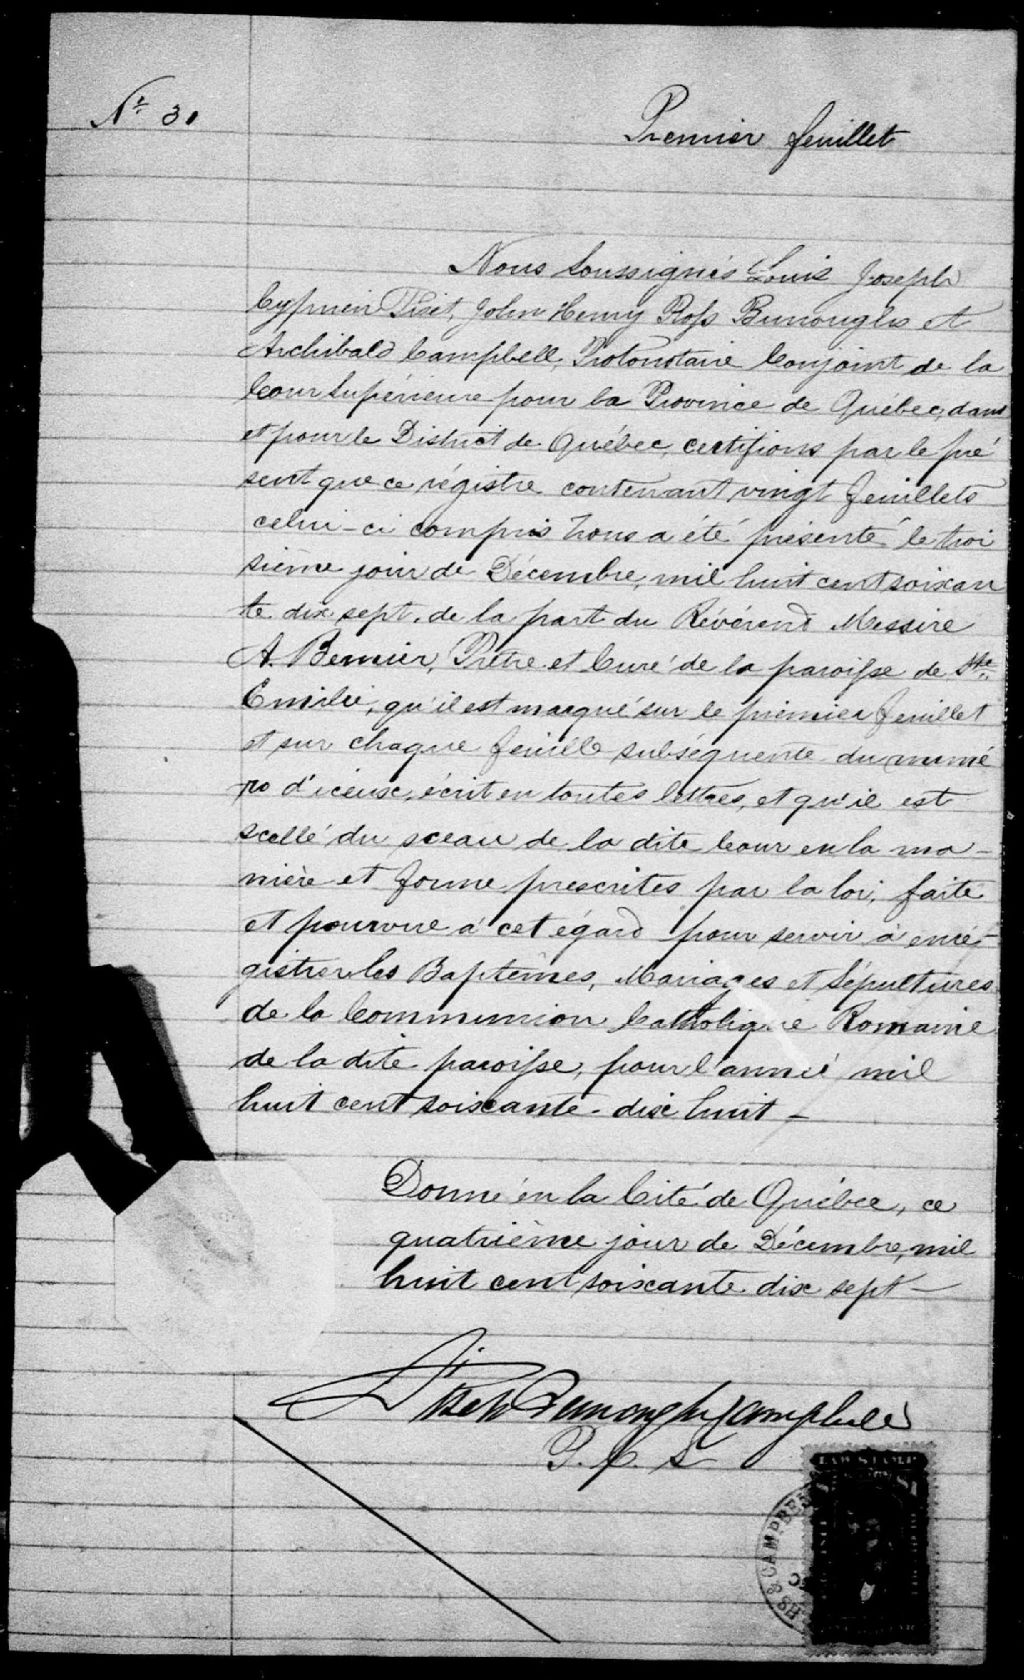 No 30
Premier feuillet
Nous Soussignés Louis Joseph
Cyprien Fiset, John Henry Ross Burroughs et
Archibald Campbell, Protonotaire Conjoint de la
Cour Supérieure pour la Province de Québec, dans
et pour le District de Québec, certifions par le pré
sent que ce régistre contenant vingt feuillets
celui-ci compris nous a été présenté le troi
sième jour de Décembre, mil huit cent soixan
te dix sept, de la part du Révérend Messire
A. Bernier, Prêtre et Curé de la paroisse de Ste
Emilie, qu'il est marqué sur le premier feuillet
et sur chaque feuille subséquente du numé
ro d'iceux, écrit en toutes lettres, et qu'il est
scellé du sceau de la dite Cour en la ma-
nière et forme prescrites par la loi, faite
et pourvue à cet égard pour servir à enré-
gistrer les Baptêmes, Mariages et Sépultures
de la Communion Catholique Romaine
de la dite paroisse, pour l'année mil
huit cent soixante-dix huit-
Donné en la Cité de Québec, ce
quatrième jour de Décembre, mil
huit cent soixante dix sept-
Fiset Burroughs Campbell
P. C. S
LAW STAMP
HS & CAMPBE